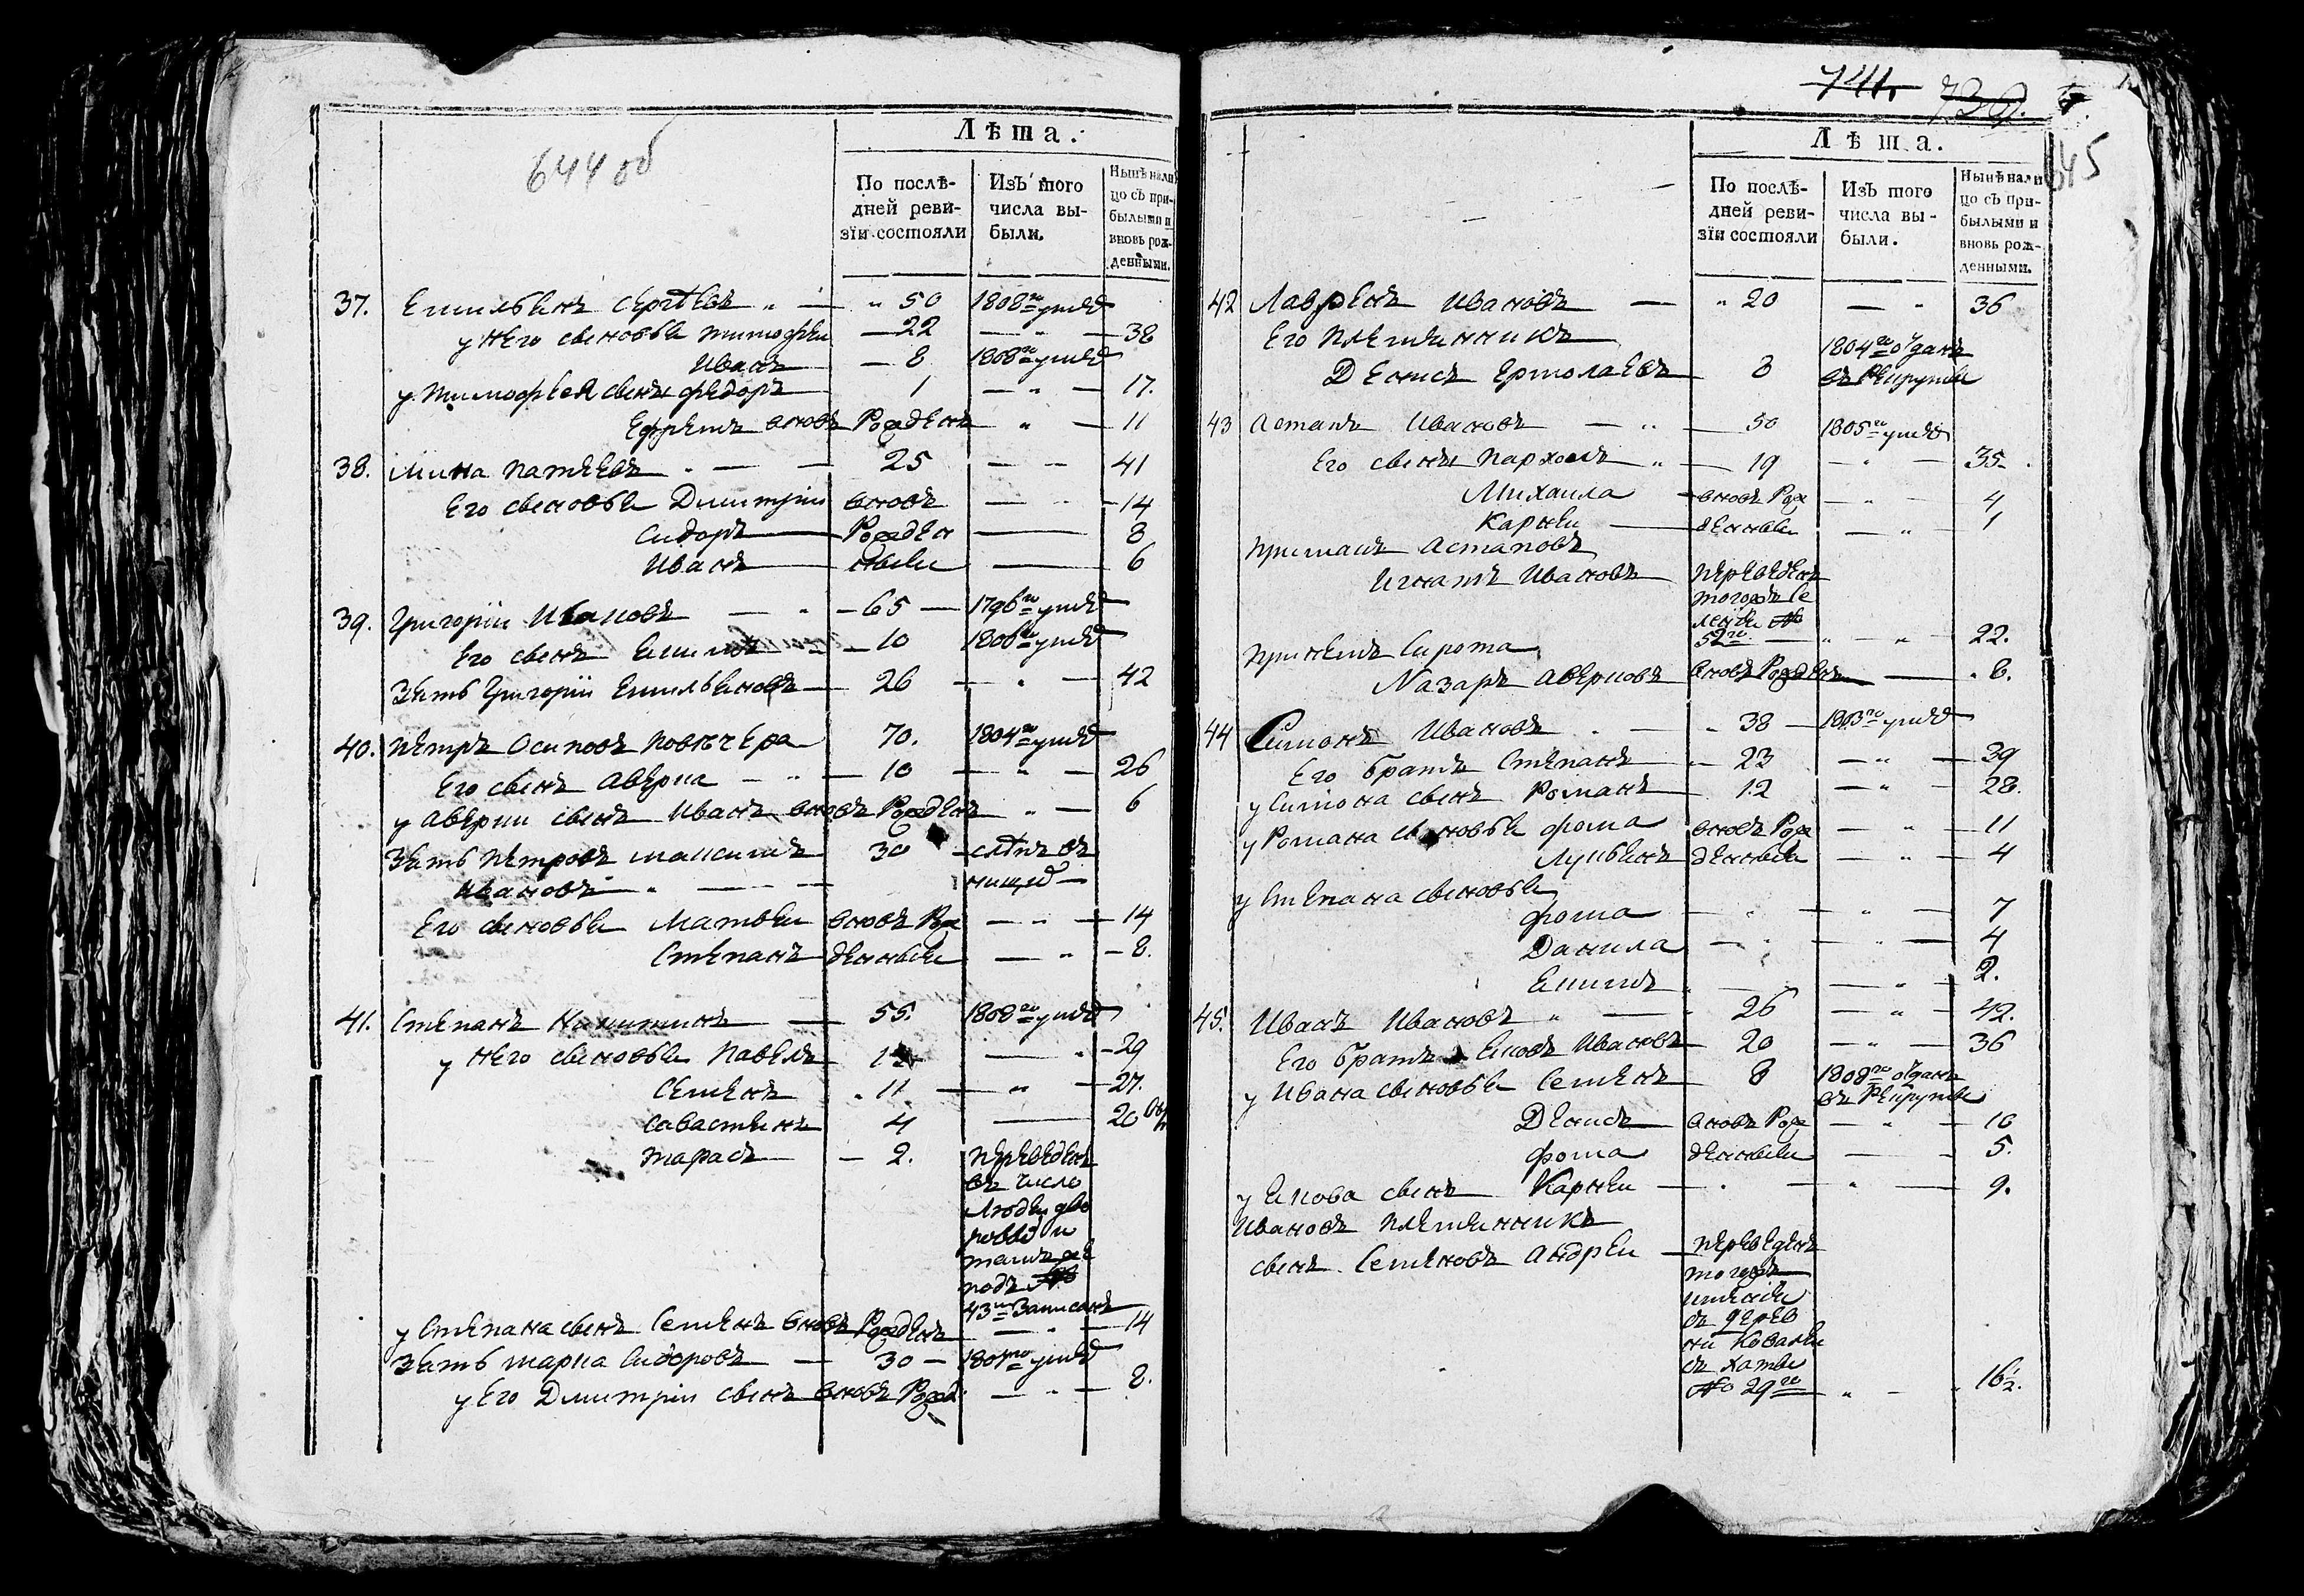 644 об
Лѣта.
По послѣ-
дней реви-
зіи состояли
Изъ того
числа вы-
были.
Нынѣ нали
цо съ при-
былыми и
вновь рож-
денными.
37. Емильянъ Сергѣевъ 50 1808го умре
у него сыновьи Тимофеи 22 38
Иванъ 8 1808го умре
у Тимофѣя сынъ Федоръ 1 17.
Ефремъ вновь рожденъ 11
38. Мина Патѣевъ 25 41
Его сыновьи Дмитріи вновь 14
Сидоръ рожден 8
Иванъ ныеи 6
39. Григоріи Ивановъ 65 1796го умре
Его сынъ 10 1806го умре
Зять Григоріи Емильяновъ 26 42
40. Петръ Осиповъ Повечера 70. 1804го умре
Его сынъ Аверка 10 26
у Аверки сынъ Иванъ вновь рожденъ 6
Зять Петровъ Максимъ 30 слѣпъ въ
Ивановъ нище
Его сыновьи Матвеи вновь рож 14
Степанъ денныеи 8.
41. Степанъ Никитинъ 55. 1808го умре
у него сыновьи Павелъ 29
Семенъ 11 27.
Савастеинъ 4 20
Тарасъ 2. переведенъ
въ число
людеи дво
ровых и
тамъ же
подъ №
43м записанъ
у Степана сынъ Семенъ вновь рожденъ 14
Зять Марка Сидоровъ 30 умре
у Его Дмитріи сынъ вновь рожд 8.
741. 739.
645
Лѣта.
По послѣ-
дней реви-
зіи состояли
Изъ того
числа вы-
были.
Нынѣ нали
цо съ при-
былыми и
вновь рож-
денными.
42 Лавренъ Ивановъ 20 36
Его племянникъ
Денисъ Ермолаевъ 8 1804го отданъ
въ рекруты
43 Астапъ Ивановъ 50 1805го умре
Его сынъ Пархомъ 19 35
Михаила вновь рож 4
Карнеи денныеи 1
Примакъ Астаповъ
Игнатъ Ивановъ переведенъ
тогожъ се
леніи №
52го 22.
Принемъ сирота
Назаръ Аверковъ вновь рожденъ 6.
44 Симонъ Ивановъ 38 1803го умре
Его братъ Степанъ 23 39
у Симона сынъ Романъ 12 28.
у Романа сыновьи Фома вновь рож 11
Лукьянъ денныеи 4
у Степана сыновьи
Фома 7
Данила 4
Екимъ 2.
45. Иванъ Ивановъ 26 42.
Его братъ Яковъ Ивановъ 20 36
у Ивана сыновьи Семенъ 8 1808го отданъ
въ рекруты
Денисъ вновь рож 10
Фома денныеи 5.
у Якова сынъ Карнеи 9.
Ивановъ племянникъ
сынъ Семеновъ Андреи переведенъ
тогожъ
имения
въ дерев
ни Ковали
въ хаты
№ 29го 16½.